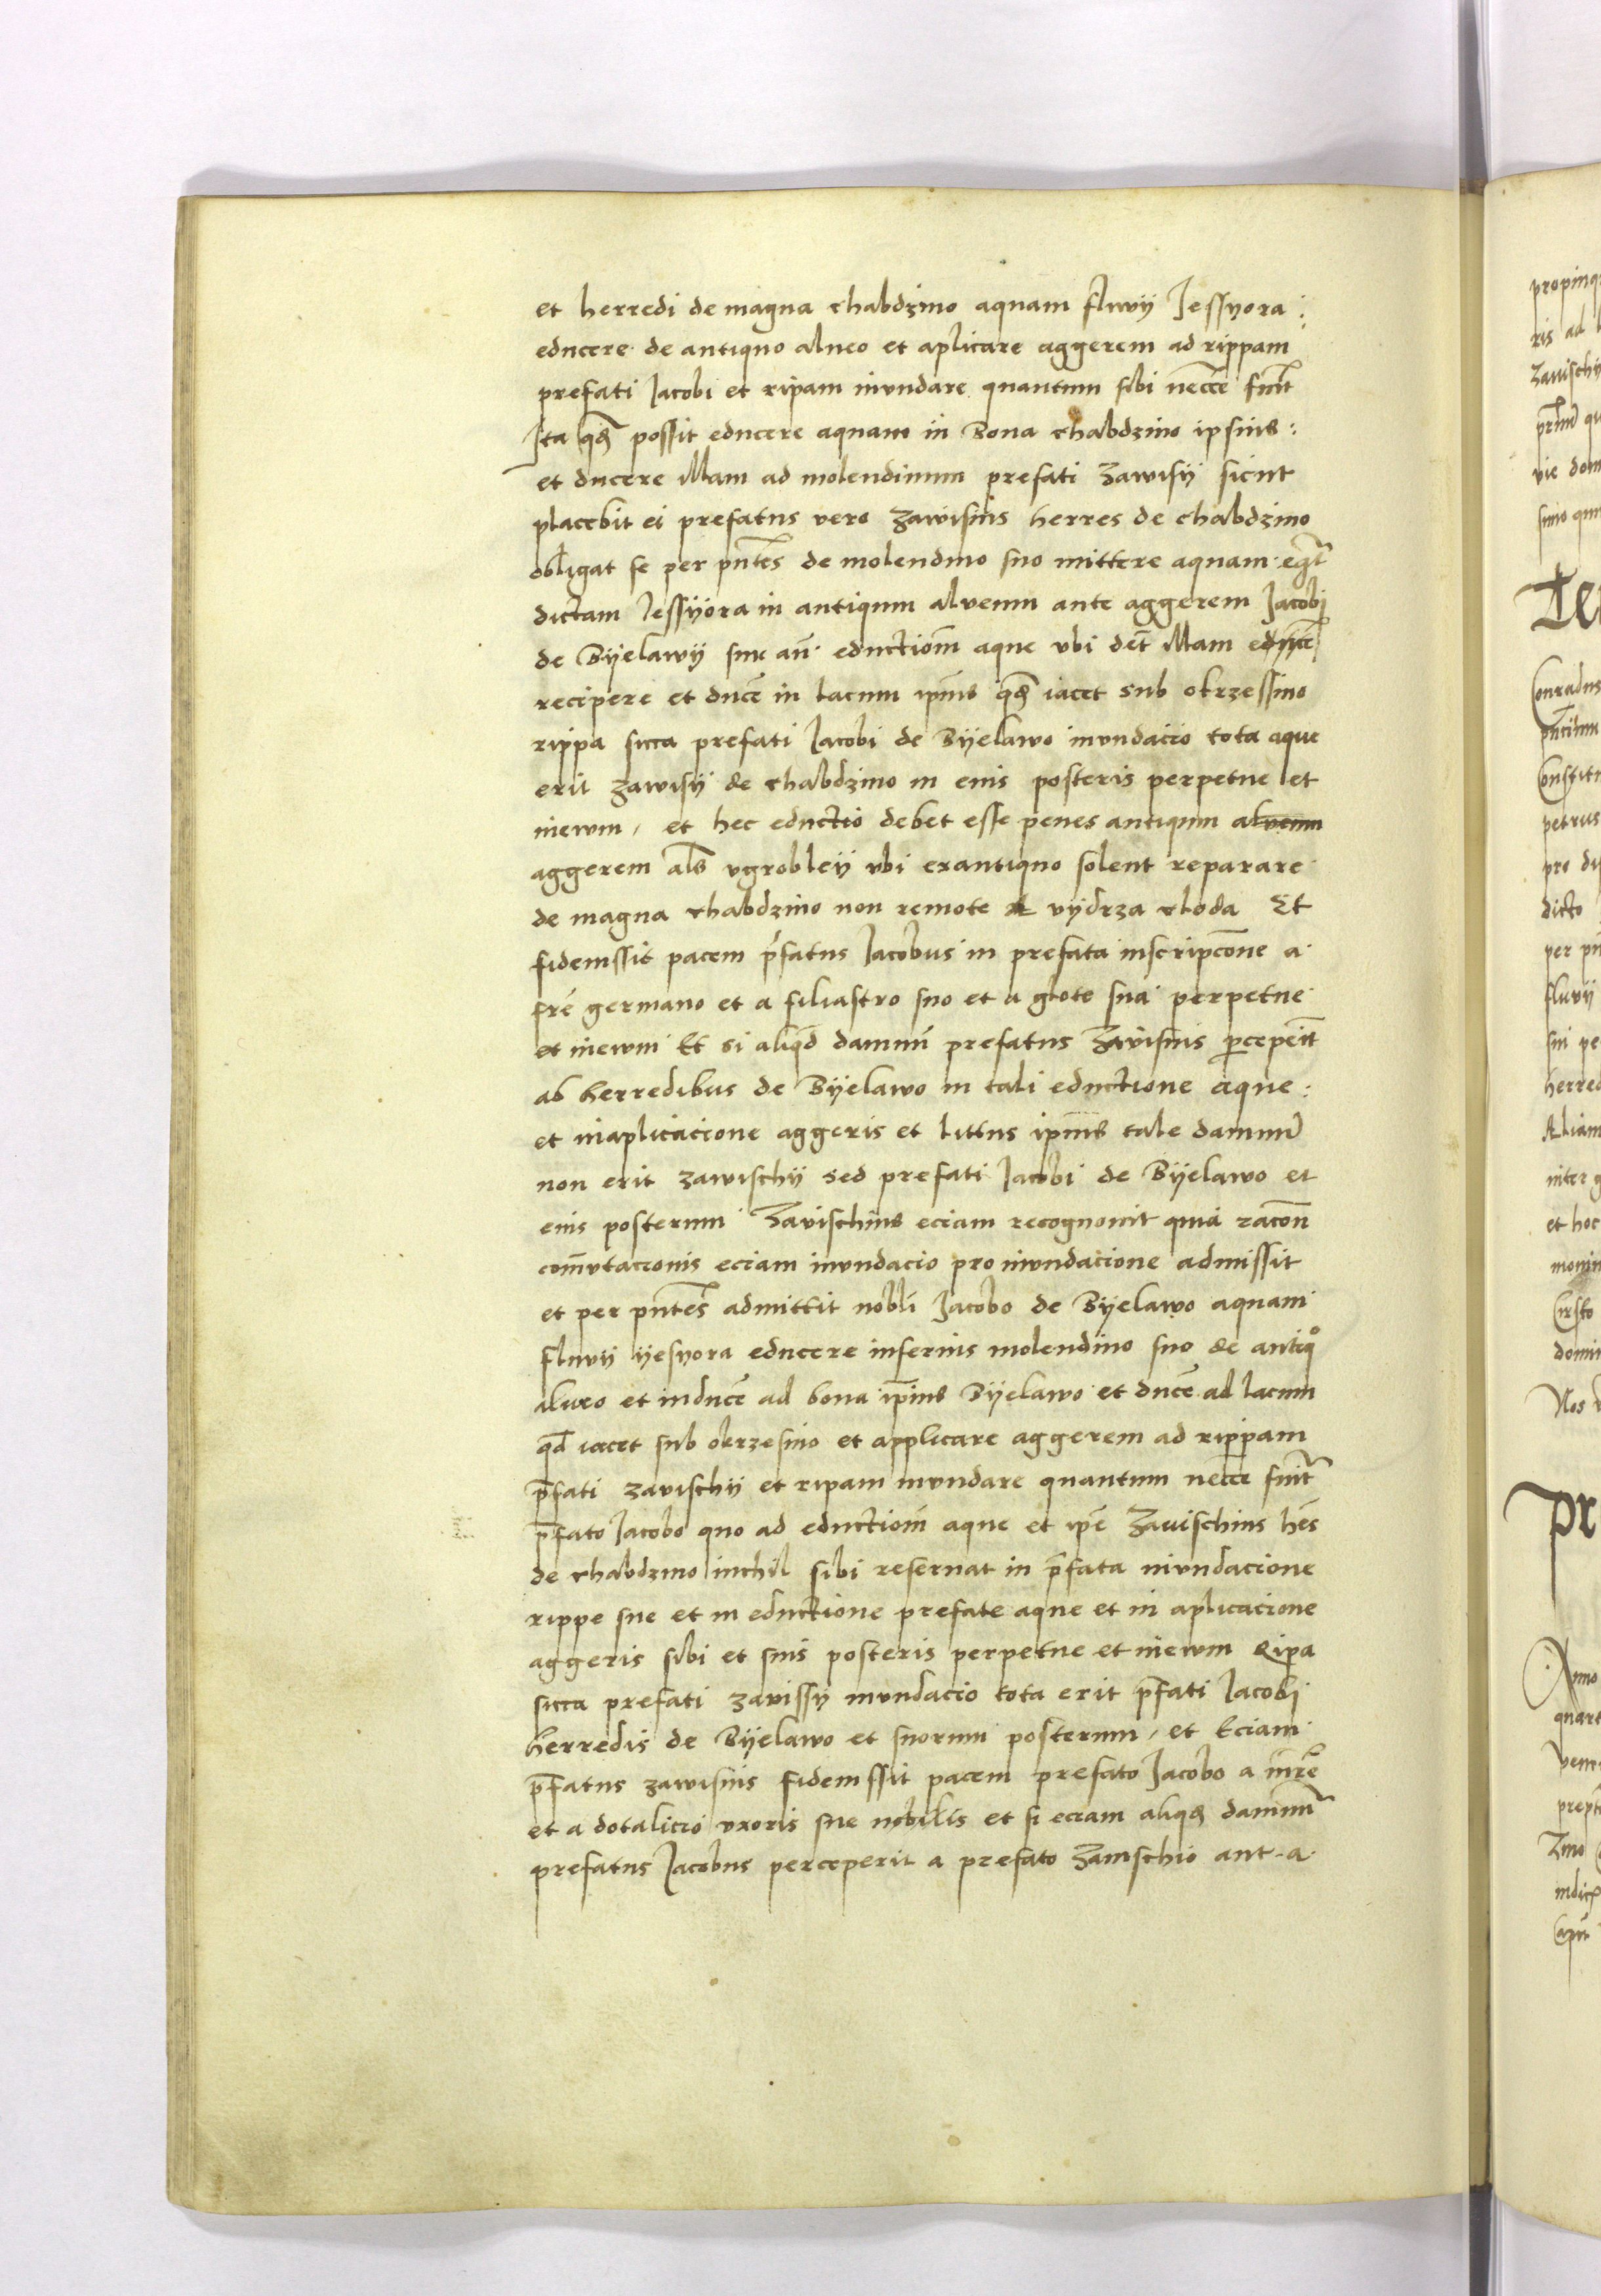 et herredi de magna chabdzino aquam fluvÿ Jessyora :
educere de antiquo alueo et aplicare aggerem ad rippam
prefati Jacobi et ripam invndare quantum sibi necce͞ fuit͛
Ita q͛ possit educere aquam in Bona chabdzino ipsius :
et ducere illam ad molendinum prefati zawisÿ sicut
placebit ei prefatus vero zawisius herres de chabdzino
obligat se per pn͞tes de molendino suo mittere aquam
dictam Jessÿora in antiquum alveum ante aggerem Jacobi
de Bÿelawÿ siue an͞ eductiom͞ aque vbi det͞ illam educe͞
recipere et duce͞ in lacum ipi͞us q͛ iacet sub okrzessino
rippa sicca prefati Jacobi de Bÿelawo invndacio tota aque
erit zawisÿ de chabdzino in eius posteris perpetue et
inewm , et hec eductio debet esse penes antiqum alveum
aggerem als͞ vgrobleÿ vbi exantiquo solent reparare
de magna chabdzino non remote a vÿdrza cloda Et
fideiussit pacem p͛fatus Jacobus in prefata inscripco͞ne a
fre͞ germano et a filiastro suo et a glote sua perpetue
et inewm Et si aliqd͞ damnu͞ prefatus Zavisius p͞cepeit͛
ab herredibus de Bÿelawo in tali eductione aque :
et inaplicacione aggeris et littus ipi͞us tale damnu͞
non erit zawischÿ sed prefati Jacobi de Bÿelawo et
eius posterum Zavischius eciam recognouit quia racon͞
com͞vtacionis eciam invndacio pro invndacione admissit
et per pn͞tes admittit nobli͞ Jacobo de Bÿelawo aquam
fluvÿ ÿesyora educere inferius molendino suo de antiqo
alueo et induce͞ ad bona ip͞ius Bÿelawo et duce͞ ad lacum
qd͞ iacet sub okrzesino et applicare aggerem ad rippam
p͞fati zavischÿ et ripam invndare quantum necce͞ fuit͛
p͞fato Jacobo quo ad eductiom͞ aque et ip͞e Zauischius he͞s
de chabdzino inchil sibi reseruat in p͞fata invndacione
rippe sue et in eductione prefate aque et in aplicacione
aggeris sibi et suis posteris perpetue et inewm Ripa
sicca prefati zavissÿ invndacio tota erit p͞fati Jacobi
herredis de Bÿelawo et suorum posterum , et Eciam
p͞fatus zawisius fideiussit pacem prefato Jacobo a mr͞e
et a dotalicio vxoris sue nobilis et si eciam aliq͛ damnu͞
prefatus Jacobus perceperit a prefato Zawischio aut a